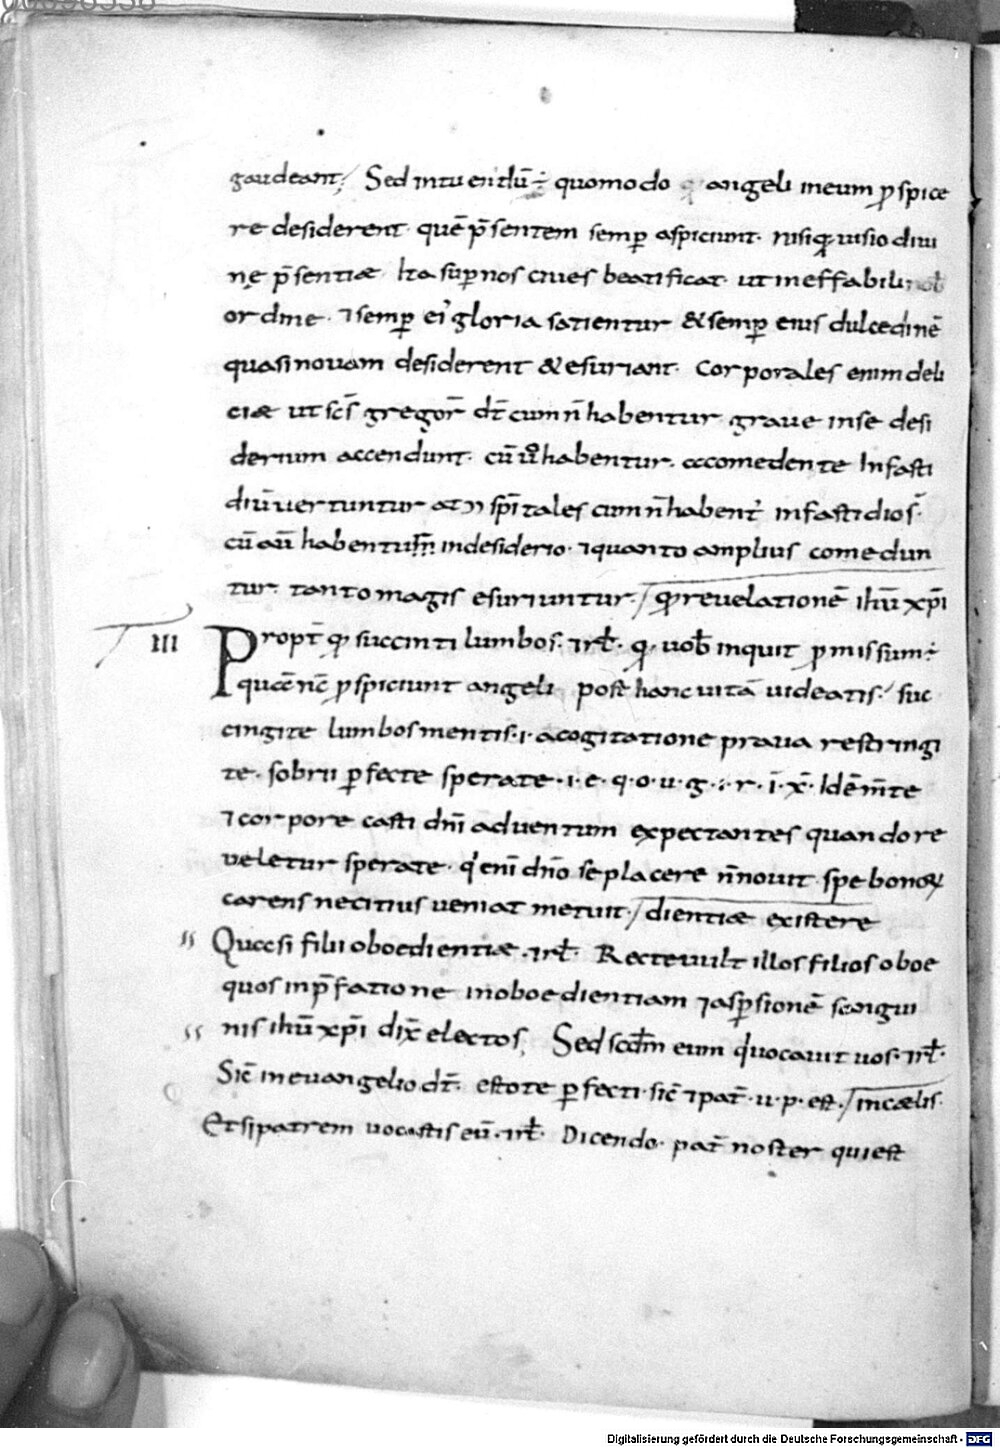 gaudeant; Sed intuendū ÷ quomodo angeli in eum ꝓspice
re desiderent. quē p̄sentem semꝑ aspiciunt. nisi qꝫ visio diui
nę p̄sentiae Ita suꝑnos ciues beatificat. ut ineffabili nob
ordine. ⁊ semꝑ ei᾽ gloria satientur & semꝑ eius dulcedinē
quasi nouam desiderent & esuriant. Corporales enim deli
ciae ut sc̄s gregor̄ dt̄ cum n̄ habentur graue in se desi
derium accendunt. cū ū habentur. accomedente In fasti
diū uertuntur at sp̄itales cum n̄ habent᾽ in fastidio s̄.
cū aū habentur in desiderio. ⁊ quanto amplius comedun
tur. tanto magis esuriuntur./ revelationē ihū xp̄i
III Propt̄ succinti lumbos. rł. q. uob̄ inquit ꝓmissum ÷
quae nc̄ ꝓspiciunt angeli post hanc uitā uideatis./ suc
cingite lumbos mentis .i. a cogitatione praua restringi
te. sobrii ꝑfecte sperate .i. e. q. o. u. g. r. ī. x̄. Idē m̄te
⁊ corpore casti dn̄i aduentum expectantes quando re
veletur sperate. q᾽ eni dn̄o se placere n̄ nouit. spe bonoꝝ
carens ne citius ueniat metuit./ dientiae existere
Quasi filii oboedientiae. rł. Recte uult illos filios oboe
quos in p̄fatione in oboedientiam ⁊ asꝑsionē sangui
nis ihū xp̄i dix̄ electos, Sed scdm eum q᾽ uocauit uos. rł.
Sic̄ in euangelio dt̄. estote ꝑfecti. sic̄ ⁊ pat̄. u. p. est./ in caelis.
Et si patrem uocastis eū. rł. Dicendo. pat̄ noster qui est
Digitalisierung gefördert durch die Deutsche Forschungsgemeinschaft - DFG